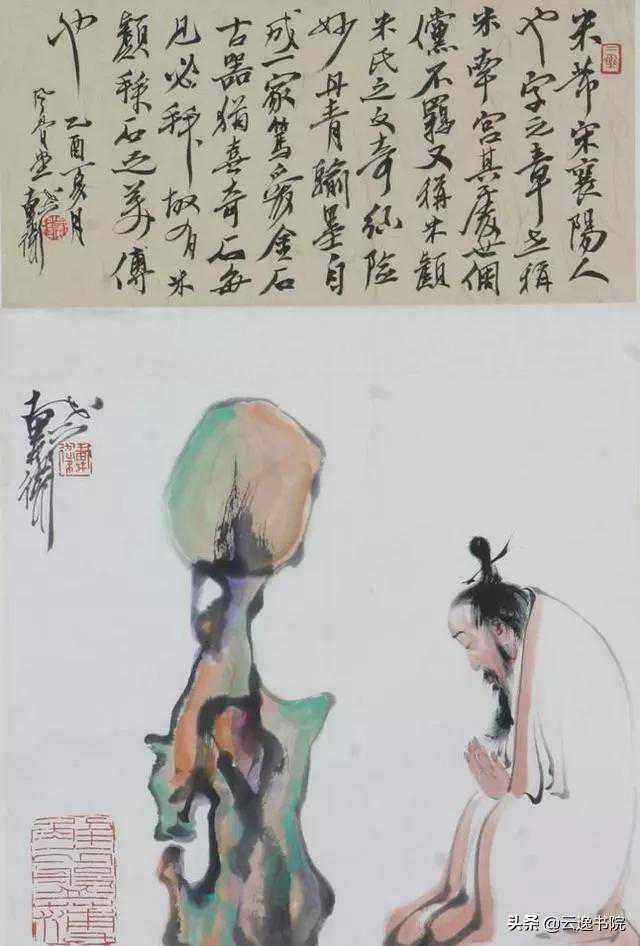 米芾宋襄陽人
也字元章世稱
米南宮其于處世倜
儻不羈又稱米顛
米氏之文奇絕險
妙丹青翰墨自
成一家篤愛金石
古器猶喜奇石每
見必拜故有米
顛拜石之美傳
也
乙酉亥月
头条 @云逸书院